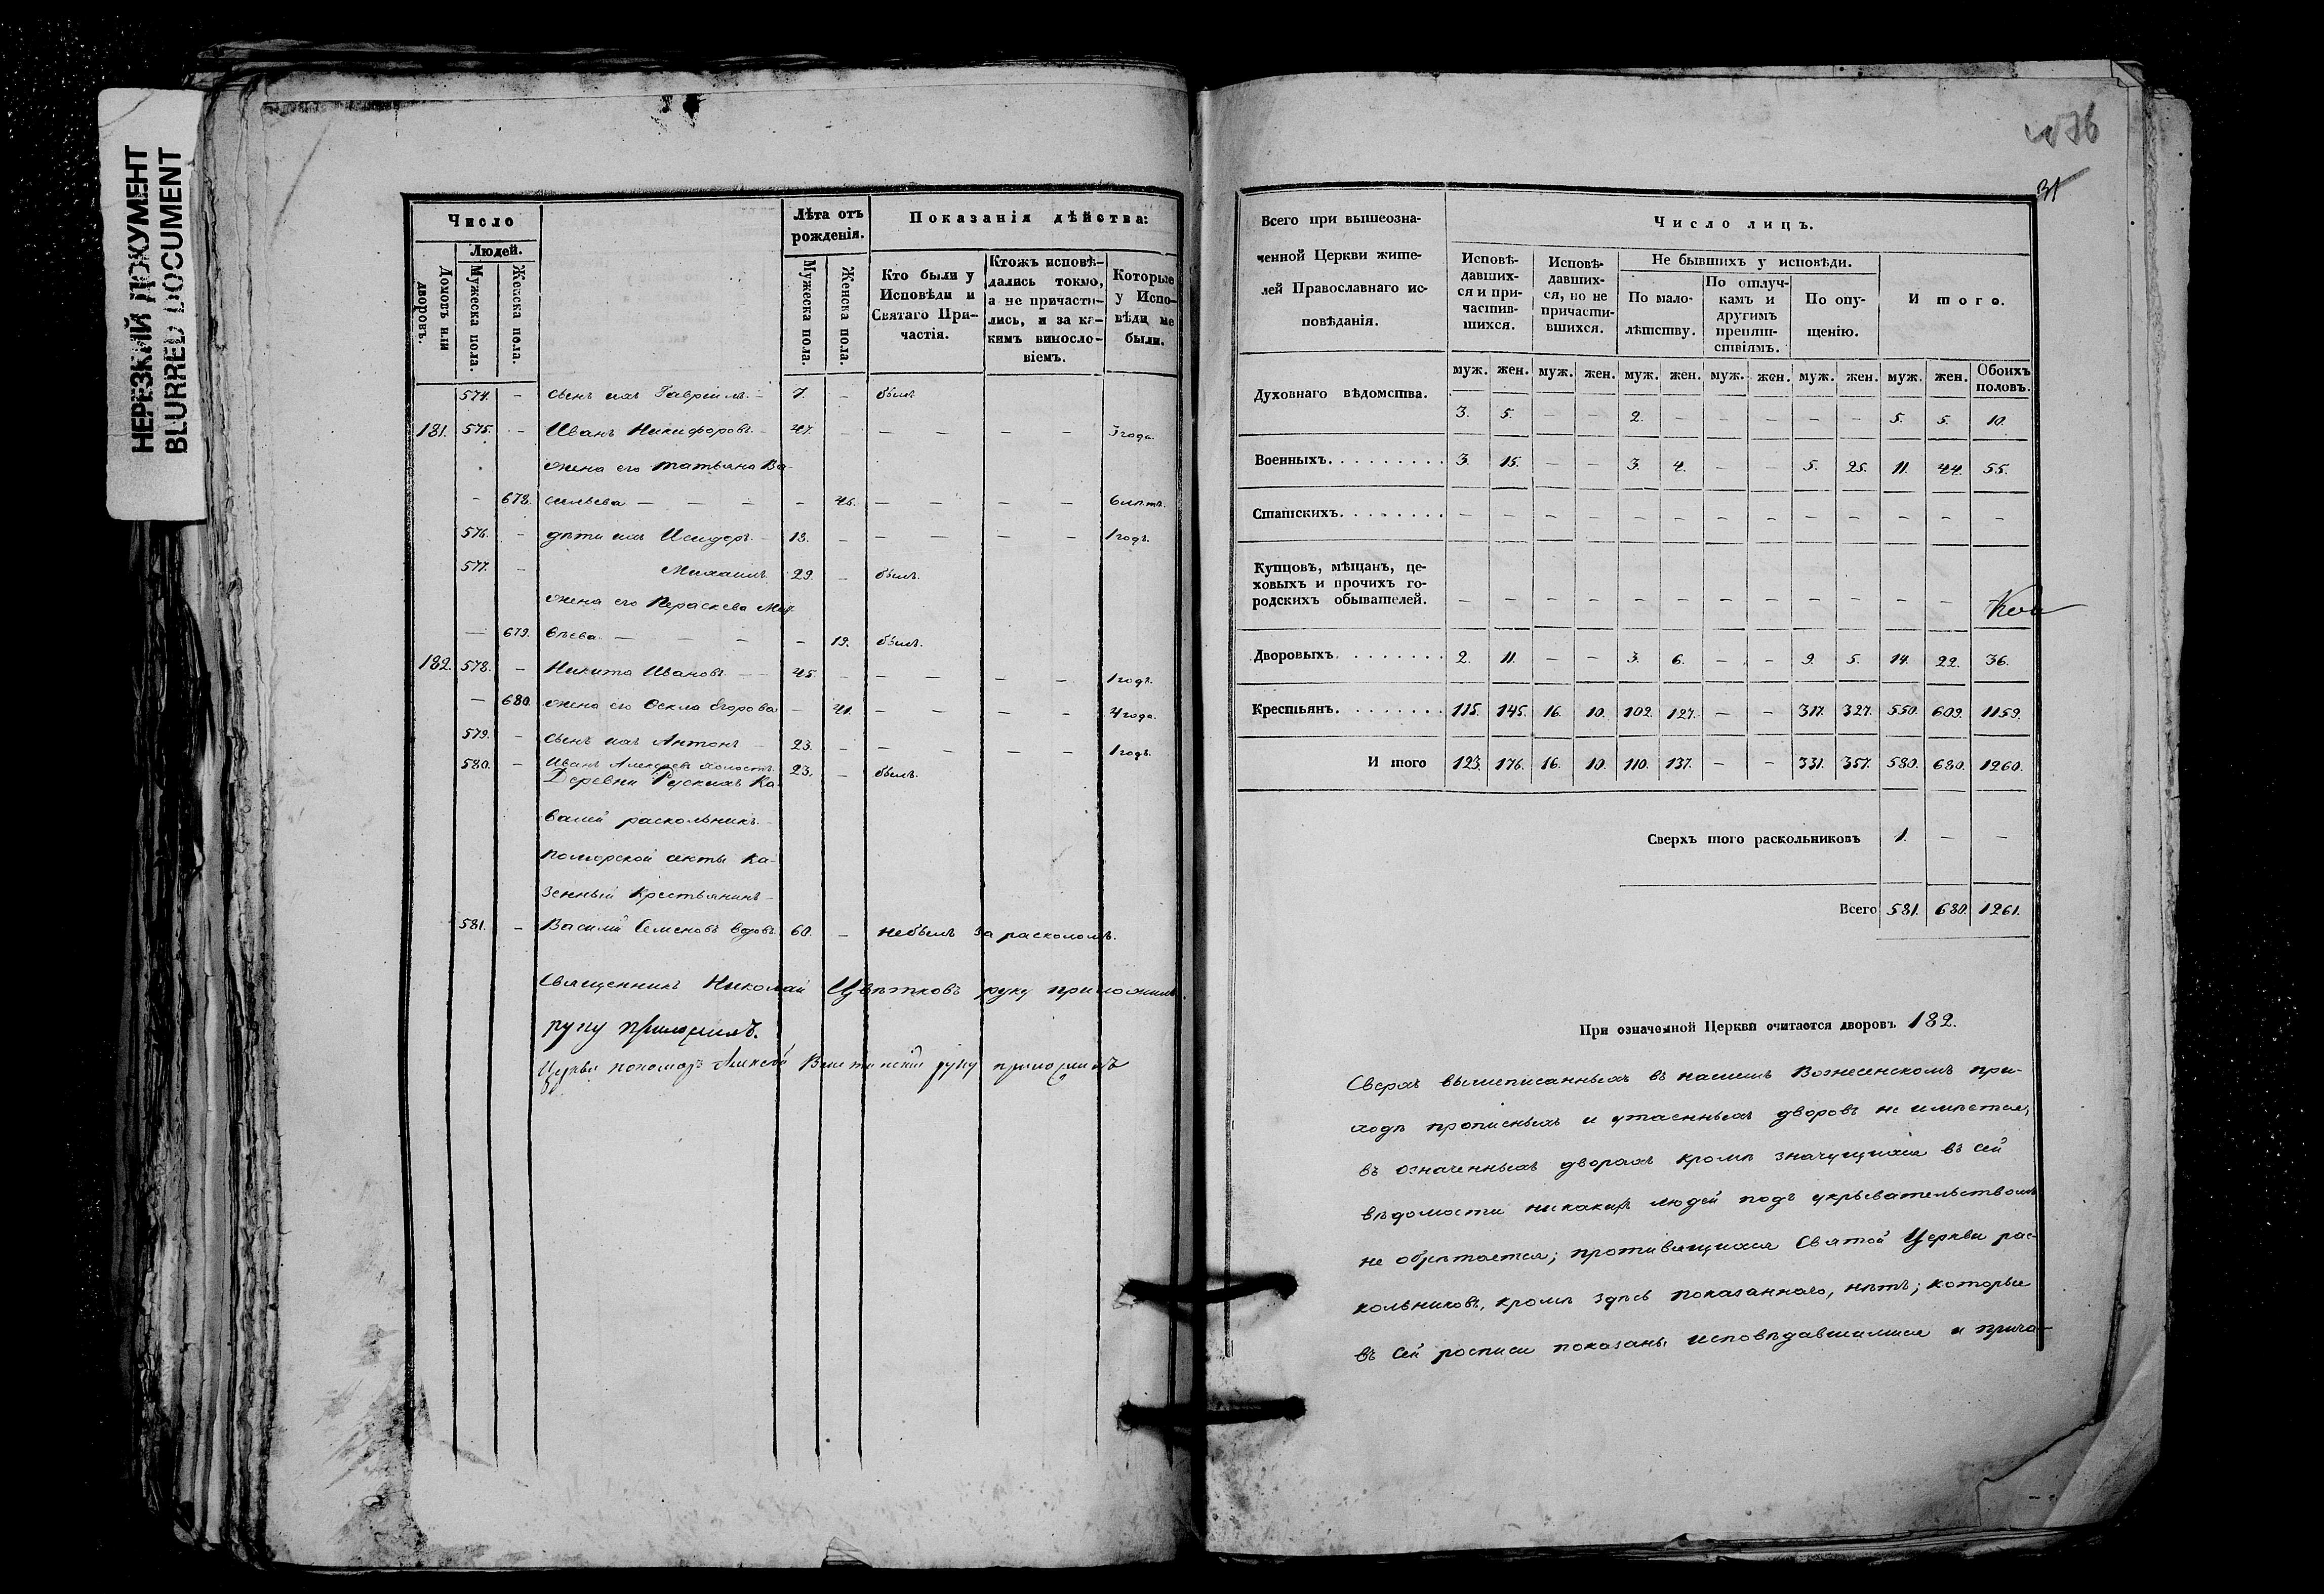 НЕРЕЗКИЙ ДОКУМЕНТ
BLURRED DOCUMENT
Число
Людей.
Домовъ или дворовъ.
Мужеска пола.
Женска пола.
Лѣта отъ рожденія.
Мужеска пола.
Женска пола.
Показанія дѣйства:
Кто были у Исповѣди и Святаго Причастія.
Ктожъ исповѣдались токмо, а не причастились, и за какимъ винословіемъ.
Которые у Исповѣди не были.
574. – сынъ ихъ Гавріилъ – 7. – былъ
181. 575. – Иванъ Никифоровъ – 47. – – – – 3 года.
жена его Татьяна Ва-
– 678. сильева – – – – 45. – – – – 6 лѣтъ.
576. – дѣти ихъ Исидоръ – 13. – – – – – 1 годъ.
577. – Михаилъ 29. – былъ.
жена его Параскева Мат-
– 679. ѳѣева – – – – 19. былъ.
182. 578. – Никита Ивановъ – – 45 – – – – – 1 годъ.
– 680. жена его Ѳекла Егорова – 41. – – – – 4 года.
579. – сынъ ихъ Антонъ – 23. – – – – – 1 годъ.
580. – Иванъ Алексѣевъ холостъ. 23. – былъ.
Деревни Рускихъ Ка-
валей раскольникъ –
поморской секты ка-
зенный крестьянинъ –
581. – Василій Семеновъ вдовъ. 60. – небылъ за расколомъ.
Священникъ Николай Цвѣтковъ руку приложилъ
руку приложилъ.
пономарь Алексѣй руку приложилъ
31
Всего при вышеозна-
ченной Церкви жите-
лей Православнаго ис-
повѣданія.
Число лицъ.
Исповѣ-
давших-
ся и при-
частив-
шихся.
Исповѣ-
давших-
ся, но не
причасти-
вшихся.
Не бывшихъ у исповѣди.
По мало-
лѣтству.
По отлуч-
камъ и
другимъ
препят-
ствіямъ.
По опу-
щенію.
И того.
муж. жен. муж. жен. муж. жен. муж. жен. муж. жен. муж. жен. Обоихъ половъ.
Духовнаго вѣдомства. 3. 5. – – 2. – – – – – 5. 5. 10.
Военныхъ. . . . . . . . . 3. 15. – – 3. 4. – – 5. 25. 11. 44. 55.
Статскихъ. . . . . . . . – – – – – – – – – – – – –
Купцовъ, мѣщанъ, це-
ховыхъ и прочихъ го-
родскихъ обывателей. – – – – – – – – – – – –
Дворовыхъ. . . . . . . . 2. 11. – – 3. 6. – – 9. 5. 14. 22. 36.
Крестьянъ. . . . . . . . 115. 145. 16. 10. 102. 127. – – 317. 327. 550. 609. 1159.
И того 123. 176. 16. 10. 110. 137. – – 331. 357. 580. 680. 1260.
Сверхъ того раскольниковъ 1. – –
Всего 581. 680. 1261.
При означенной Церкви считается дворовъ 182.
Сверхъ вышеписанныхъ въ нашемъ Вознесенскомъ при-
ходѣ прописныхъ и утаенныхъ дворовъ не имѣется;
въ означенныхъ дворахъ кромѣ значущихся въ сей
вѣдомости никакихъ людей подъ укрывательствомъ
не обрѣтается; противящихся Святой Церкви рас-
кольниковъ, кромѣ здѣсь показаннаго, нѣтъ; которые
въ сей росписи показаны исповѣдавшимися и прича-